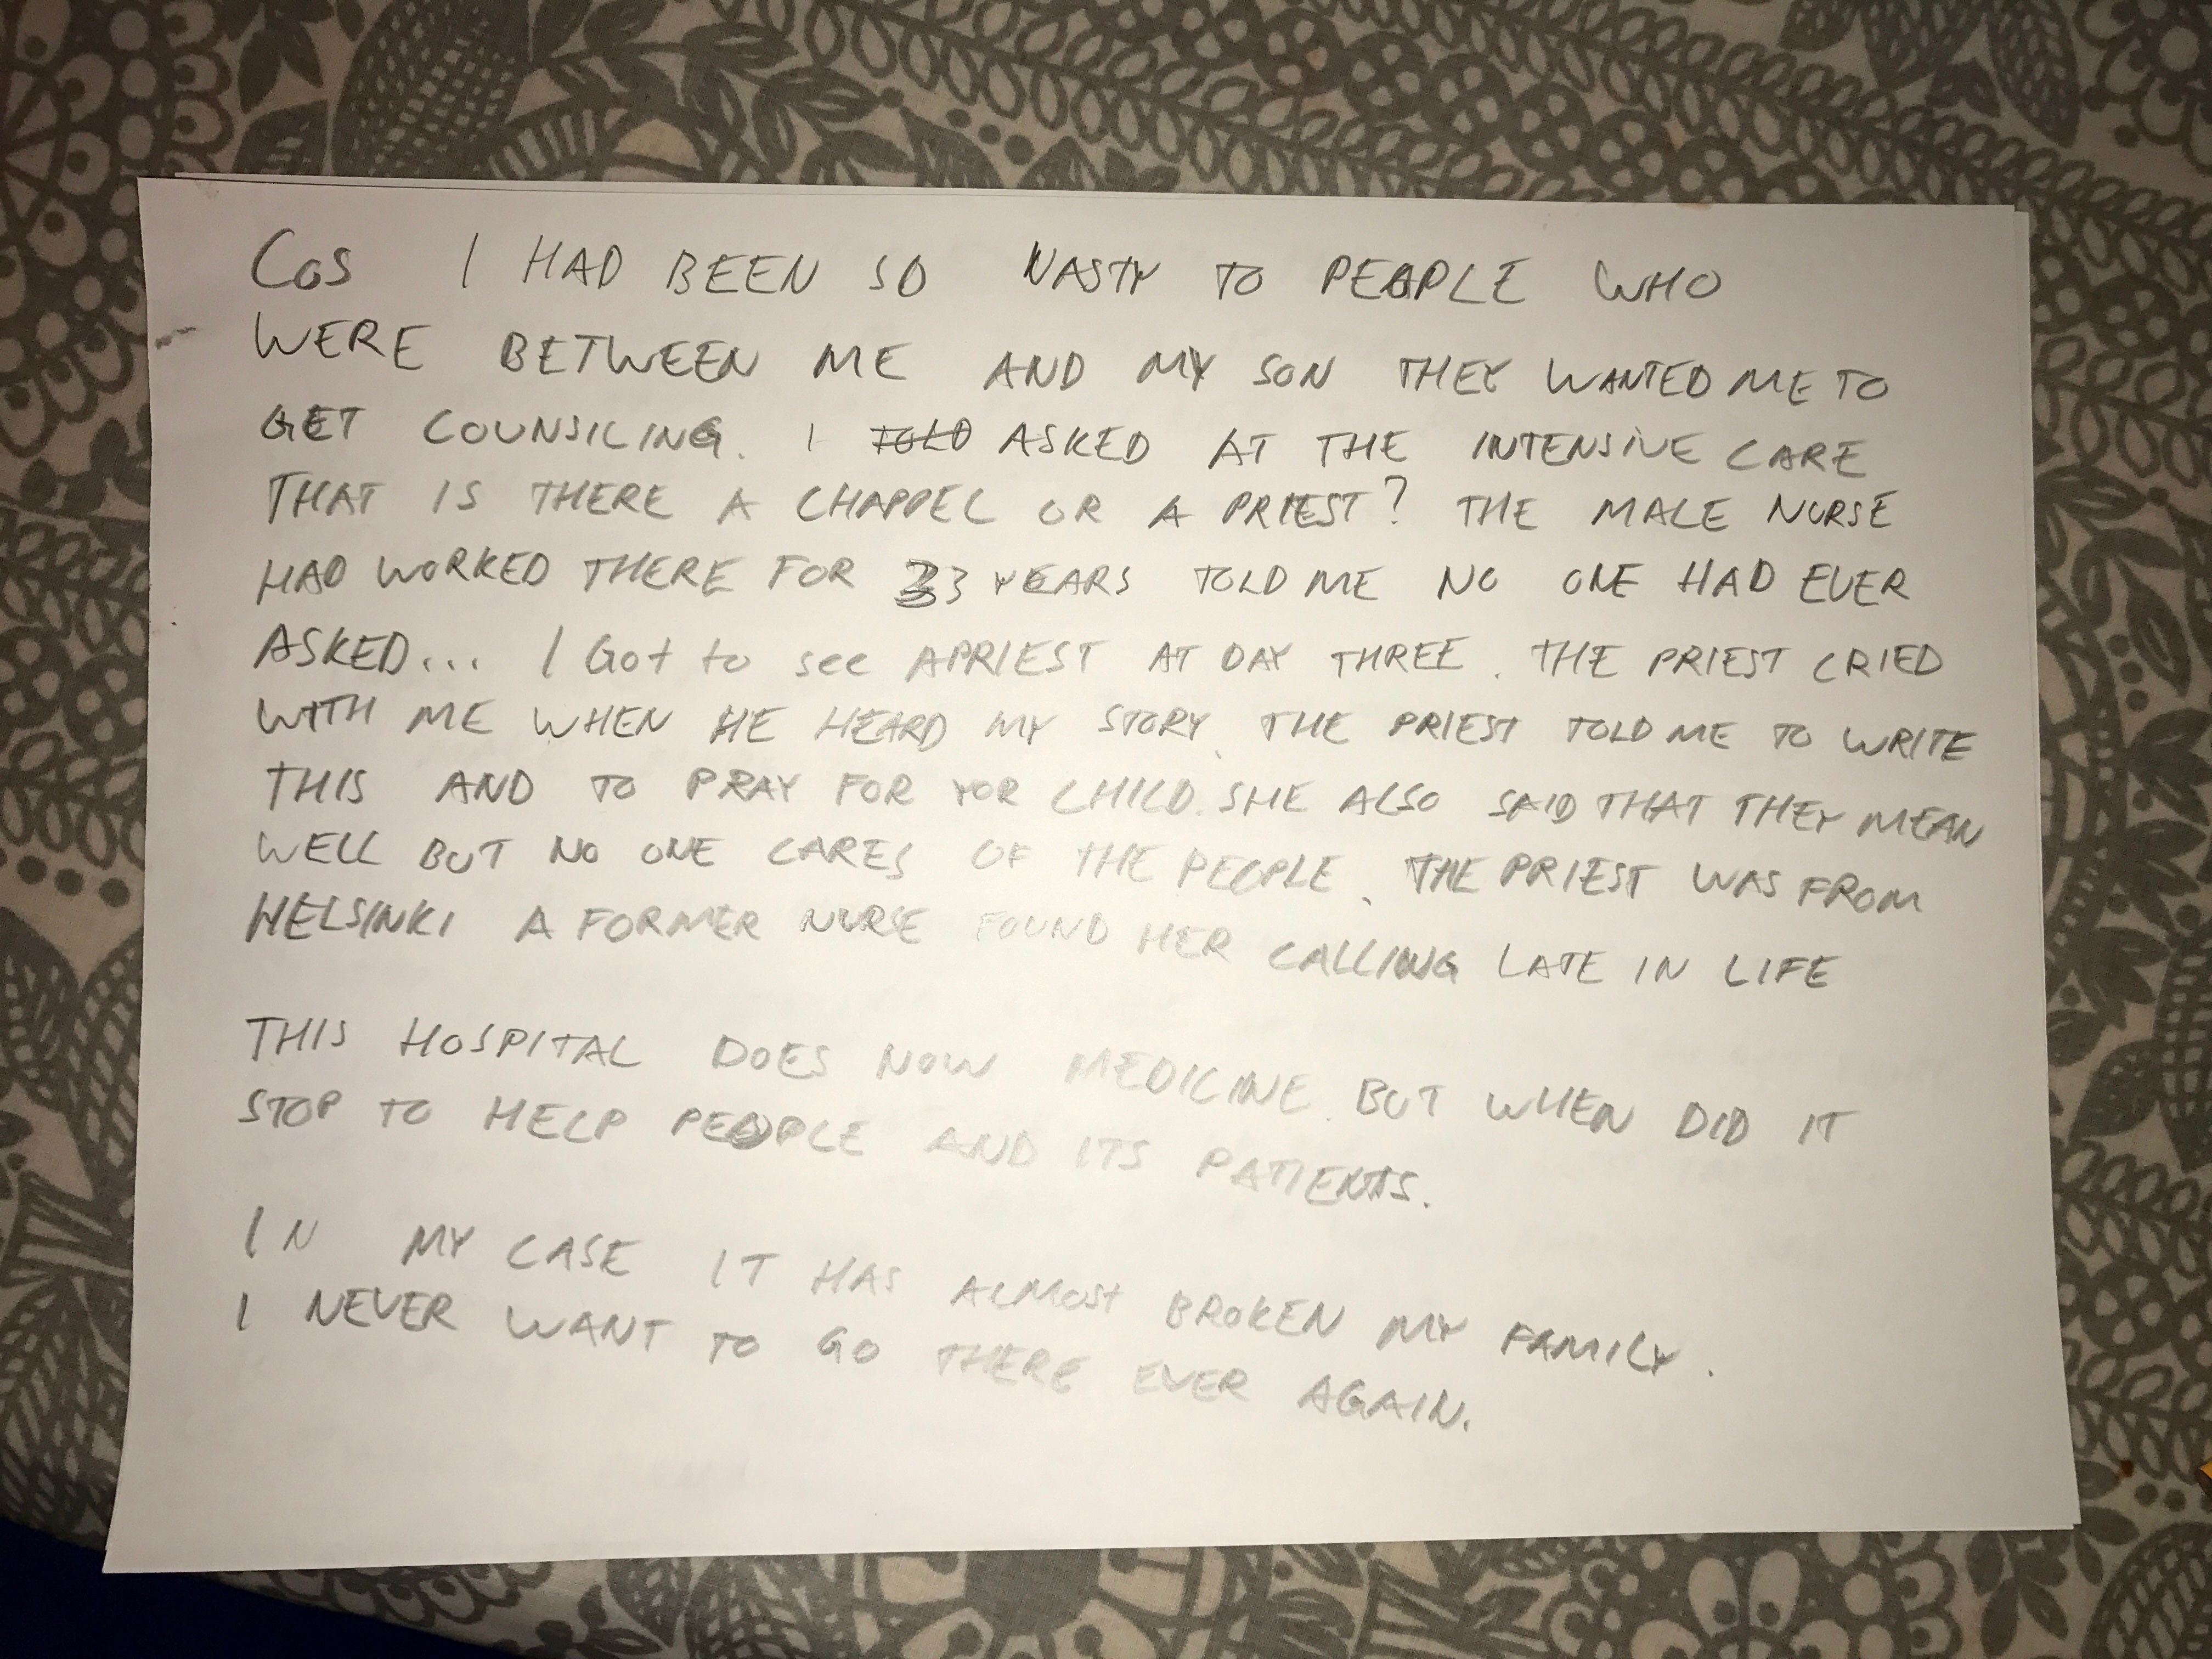 COS I HAD BEEN SO NASTY TO PEOPLE WHO
WERE BETWEEN ME AND MY SON THEY WANTED ME TO
GET COUNSILING. I TOLD ASKED AT THE INTENSIVE CARE
THAT IS THERE A CHAPPEL OR A PRIEST? THE MALE NURSE
HAD WORKED THERE FOR 33 YEARS TOLD ME NO ONE HAD EVER
ASKED... I Got to see A PRIEST AT DAY THREE. THE PRIEST CRIED
WITH ME WHEN HE HEARD MY STORY. THE PRIEST TOLD ME TO WRITE
THIS AND TO PRAY FOR YOR CHILD. SHE ALSO SAID THAT THEY MEAN
WELL BUT NO ONE CARES OF THE PEOPLE. THE PRIEST WAS FROM
HELSINKI A FORMER NURSE FOUND HER CALLING LATE IN LIFE
THIS HOSPITAL DOES NOW MEDICINE BUT WHEN DID IT
STOP TO HELP PEOPLE AND ITS PATIENTS.
IN MY CASE IT HAS ALMOST BROKEN MY FAMILY.
I NEVER WANT TO GO THERE EVER AGAIN.